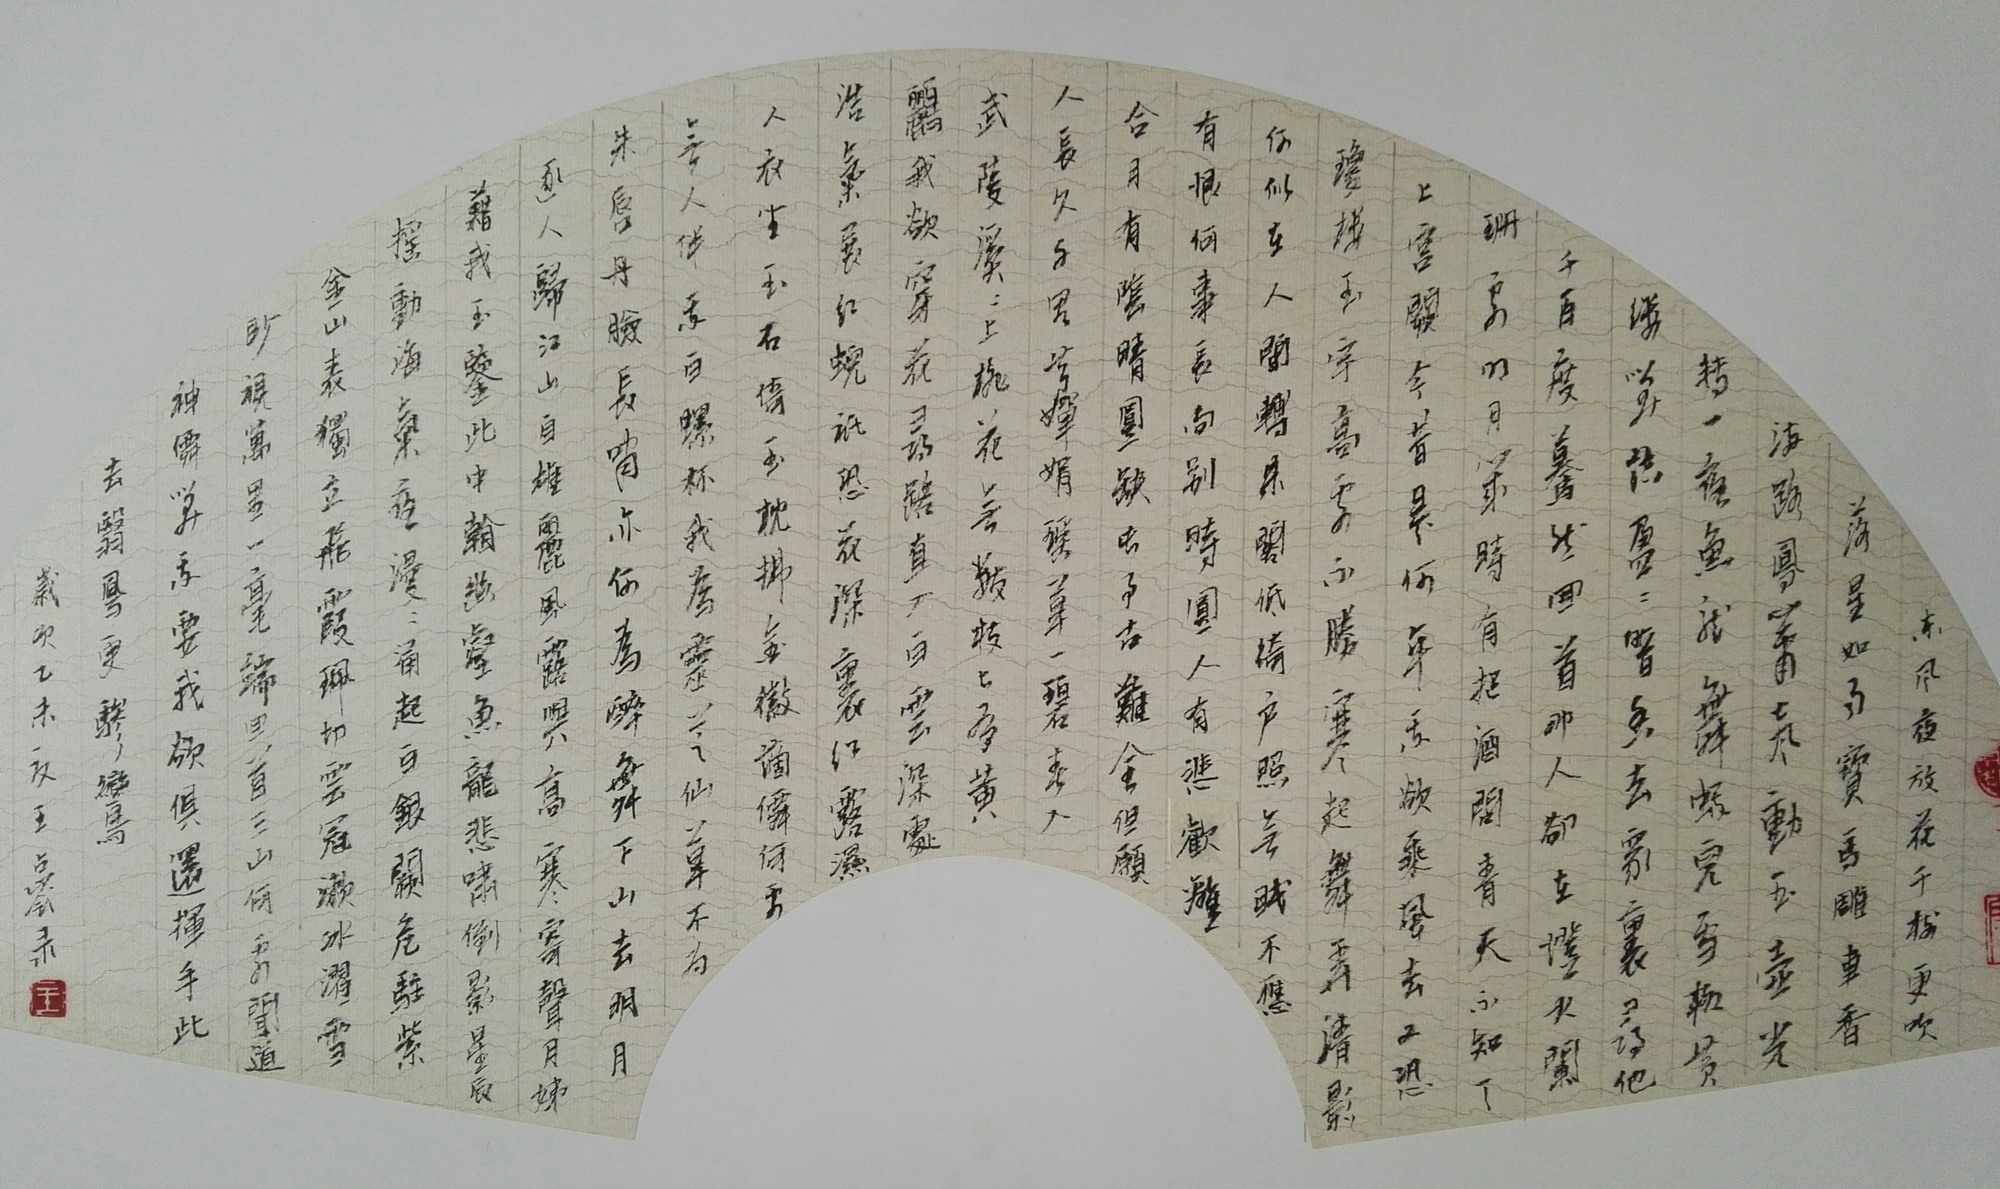 东風夜放花千树更吹
落星如雨寶馬雕車香
满路鳳簫声動玉壶光
转一夜魚龙舞蛾兒雪柳黄
缕笑語盈〻暗香去眾裏尋他
千百度驀然回首那人却在燈火闌
珊處明月幾時有把酒問青天不知天
上宫闕今昔是何年我欲乘風去又恐
瓊樓玉宇高處不勝寒起舞弄清影
何似在人間轉朱閣低綺户照無眠不應
有恨何事長向别時圓人有悲歡離
合月有陰晴圓缺此事古難全但願
人長久千里共嬋娟瑶草一碧春入
武陵溪〻上桃花無數枝上有黄
鸝我欲穿花尋路直入白雲深處
浩氣展紅蜺祇恐花深裏紅露濕
人衣坐玉石倚玉枕拂金徽謫僊何處
無人伴我白螺杯我為靈芝仙草不为
朱唇丹臉長嘯亦何為醉舞下山去明月
逐人歸江山自雄麗風露與高寒寄聲月姊
藉我玉鑒此中看幽壑魚龍悲嘯倒影星辰
摇動海氣夜漫〻涌起白銀闕危駐紫
金山表獨立飛霞珮切雲冠漱冰濯雪
眇視萬里一毫端回首三山何處聞道
神僊笑我要我欲俱還揮手此
去翳鳳更驂鸞
歲次乙未 王占 录